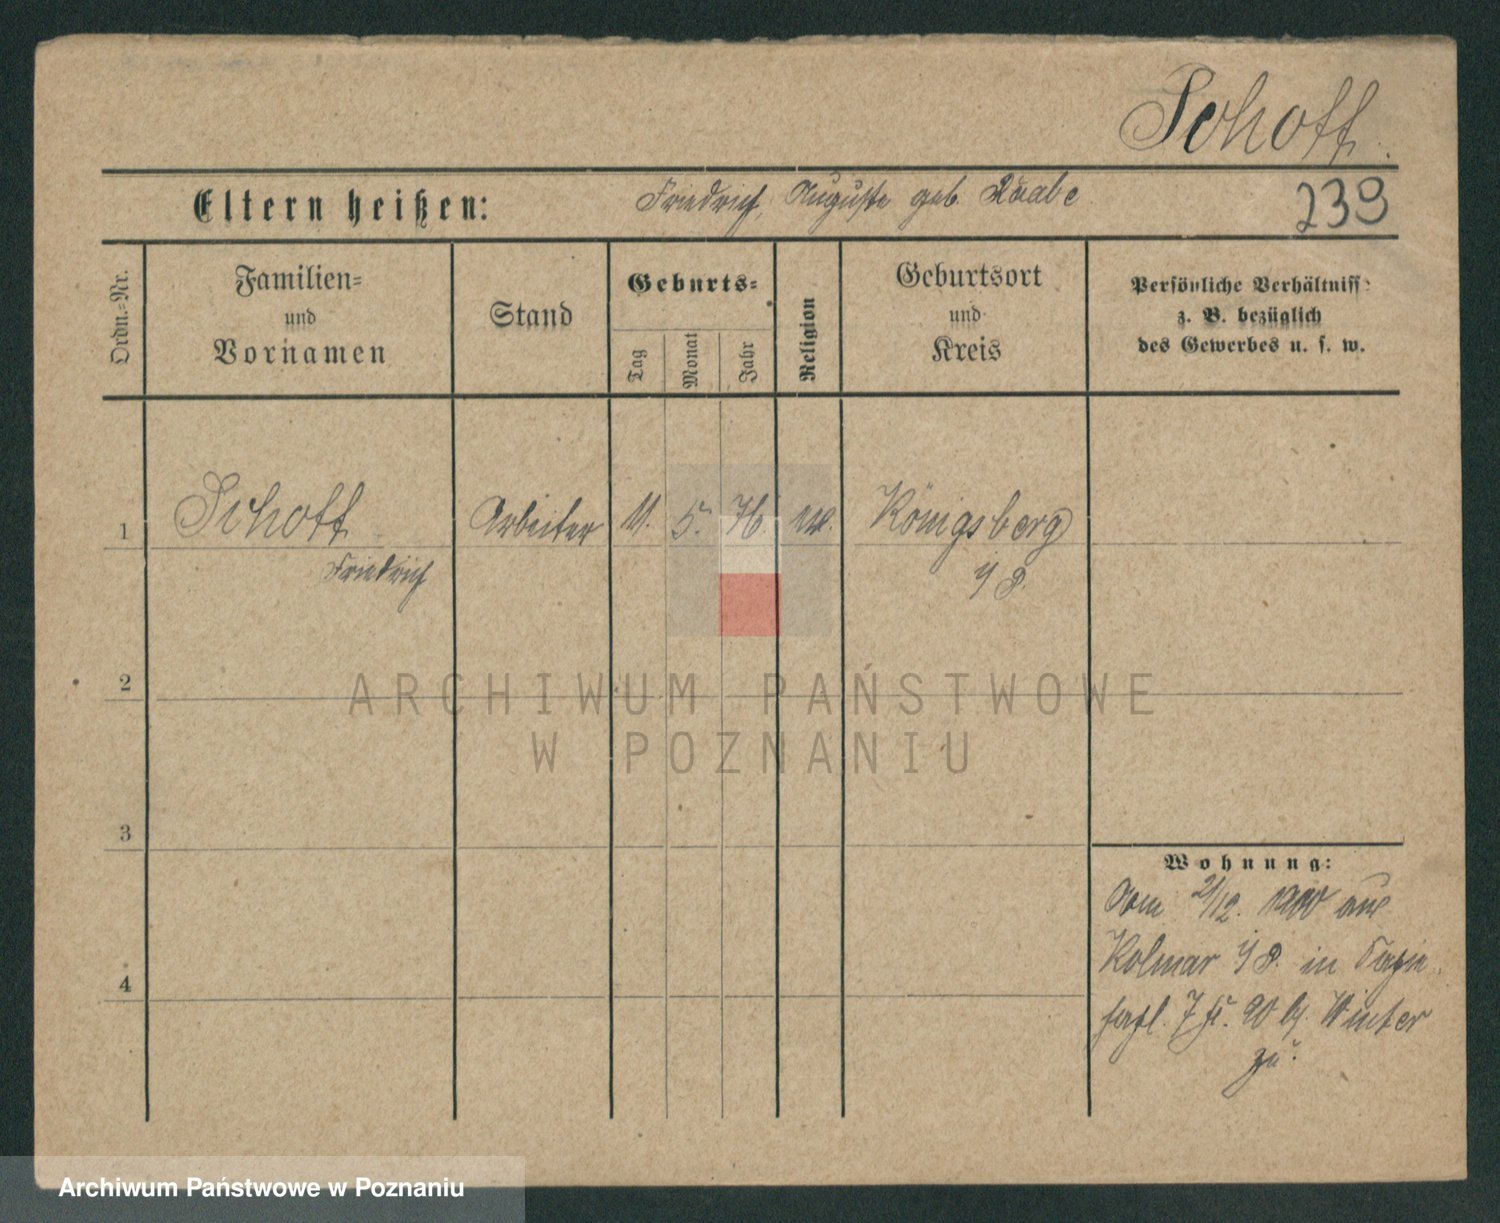 Schott.
Eltern heißen: Friedrich, Auguste geb. Raabe
239
Ordn.-Nr.
Familien-
und
Vornamen
Stand
Geburts-
Tag
Monat
Jahr
Religion
Geburtsort
und
Kreis
Persönliche Verhältniss
z. B. bezüglich
des Gewerbes u. s. w.
1 Schott Arbeiter 11. 5. 76. Königsberg
Friedrich
2
3
4
Wohnung:
Vom 21/12. 1900 aus
Kolmar i/P. in
7 Winter
zu.
ARCHIWUM PAŃSTWOWE
W POZNANIU
Archiwum Państwowe w Poznaniu